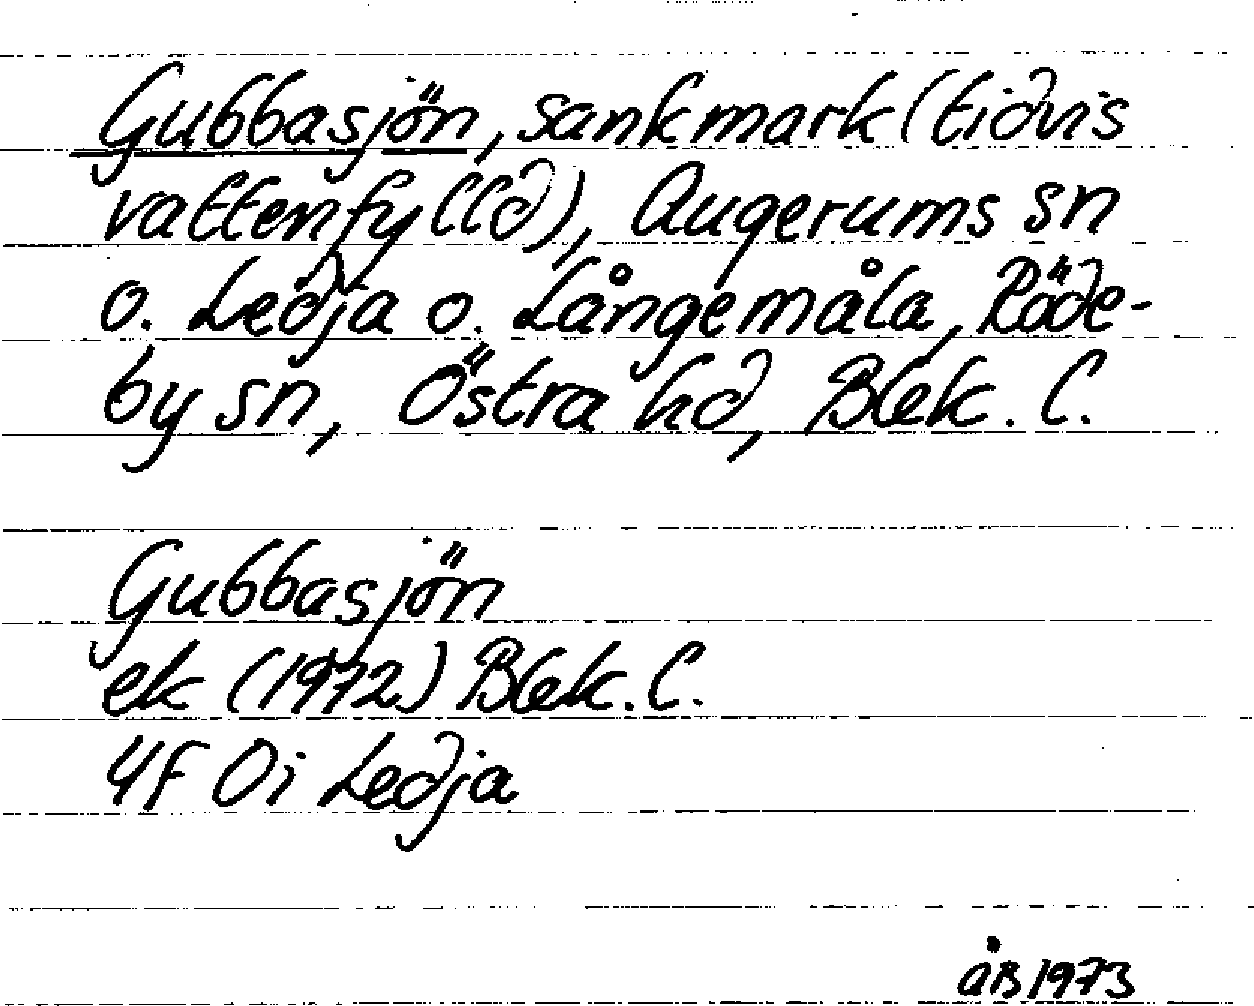 Gubbasjön, sankmark (tidvis
vattenfylld), Augerums sn
o. Ledja o. Långemåla, Röde-
by sn, Östra hd, Blek. l.
Gubbasjön
ek (1972) Blek. l.
4F 0i Ledja
ÅB 1973